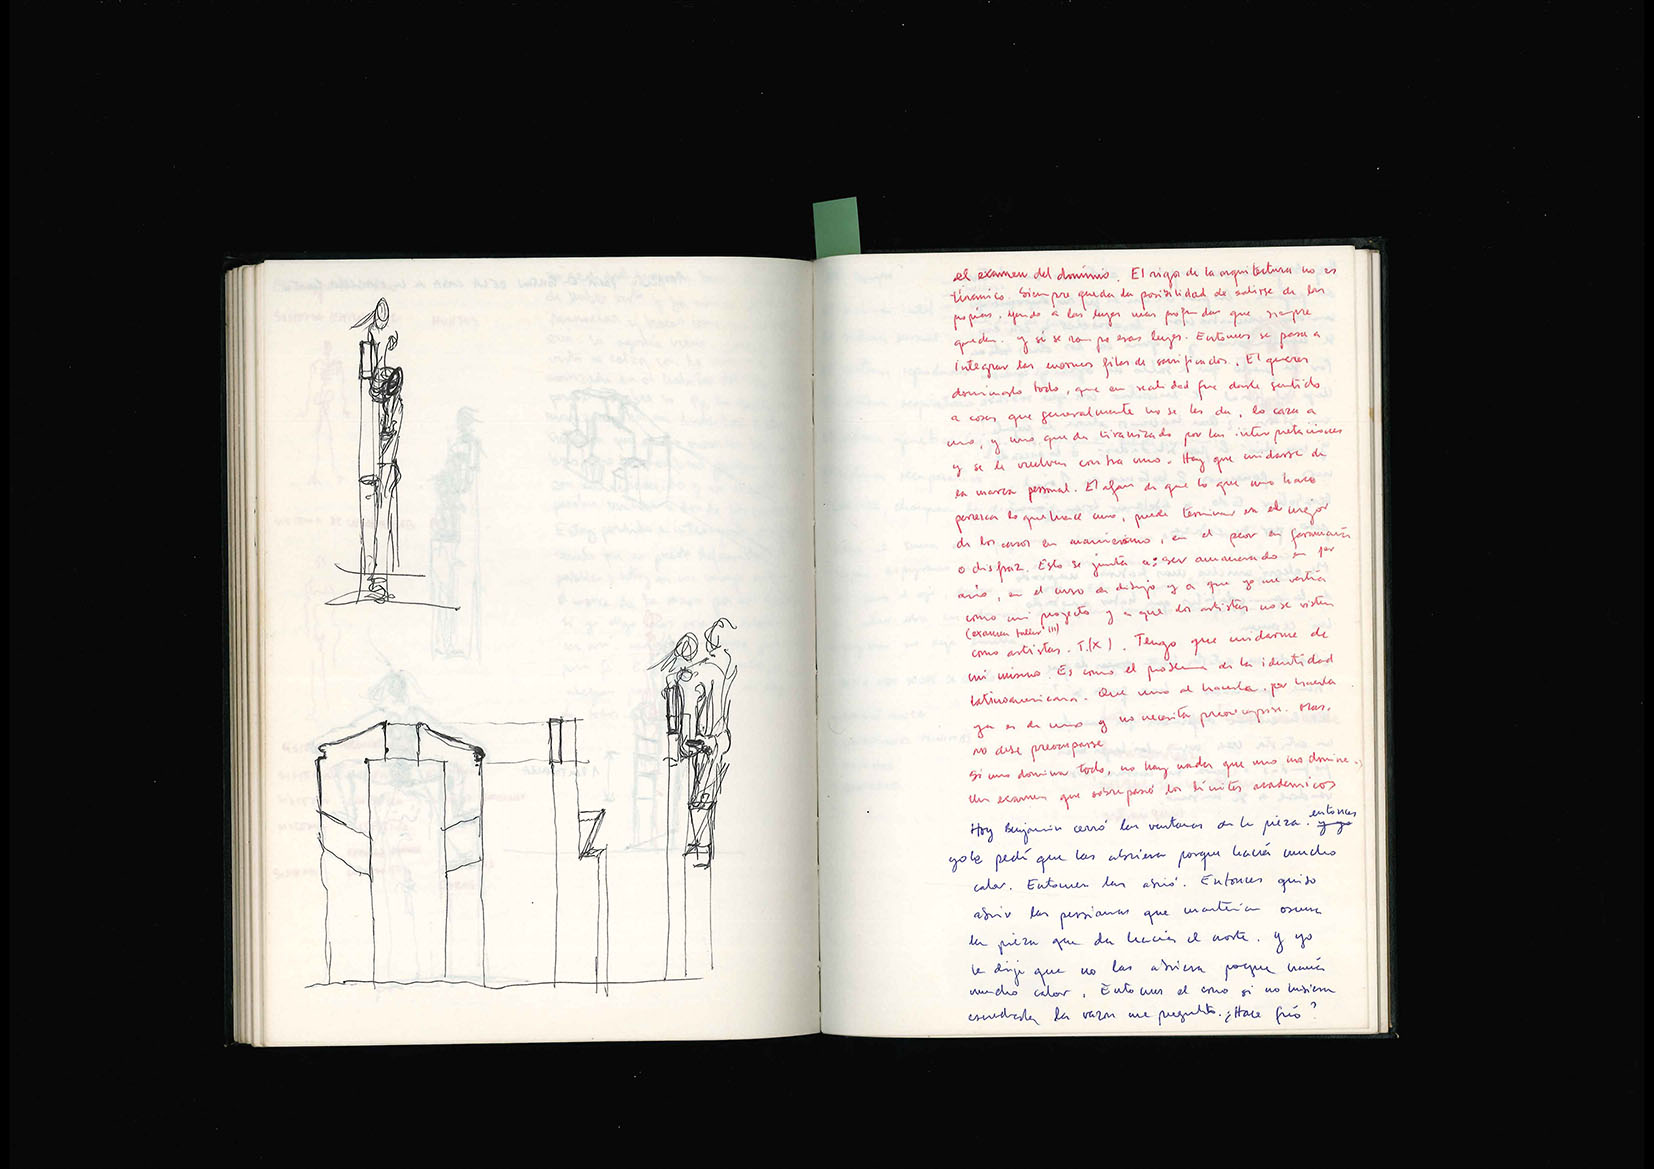 el examen del dominio. El rigor de la arquitectura no es
tiránico. Siempre queda la posibilidad de salirse de las
propias, yendo a las leyes más profundas que siempre
quedan. y si se rompe esas leyes. Entonces se pasa a
integrar las enormes filas de sacrificados. El querer
dominarlo todo, que en realidad fue darle sentido
a cosas que generalmente no se les da, lo caza a
uno, y uno queda tiranizado por las interpretaciones
y se le vuelven contra uno. Hay que cuidarse de
la marca personal. El afan de que lo que uno hace
parezca lo que hace uno, puede terminar en el mejor
de los casos en manierismo, en el peor en
o disfraz. Esto se junta a: ser amanerado en
año, en el curso de dibujo y a que yo me vestía
como mi proyecto y a que los artistas no se visten
(examen taller III)
como artistas. T.(X). Tengo que cuidarme de
mi mismo. Es como el problema de la identidad
latinoamericana. Que uno al hacerla, por hacerla
ya es de uno y no necesita preocuparse. Mas,
no debe preocuparse
Si uno domina todo, no hay nada que uno no domine.
Un examen que sobrepasó los límites académicos
Hoy Benjamin cerró las ventanas de la pieza. entonces
y yo
yo le pedí que las abriera porque hacía mucho
calor. Entonces las abrió. Entonces quiso
abrir las persianas que mantenían oscura
la pieza que da hacia el norte. y yo
le dije que no las abriera porque hacía
mucho calor. Entonces el como si no hubiera
escuchado la razon me pregunto. ¿Hace frío?